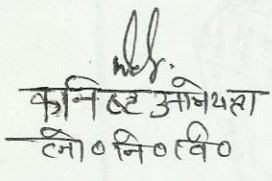 कनिष्ट अभियंता
लो०नि०वि०